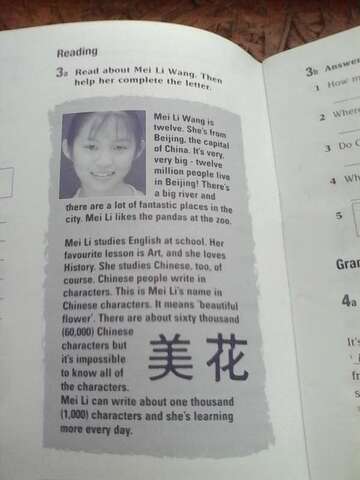 Reading
3a Read about Mei Li Wang. Then
help her complete the letter.
Mei Li Wang is
twelve. She's from
Beijing, the capital
of China. It's very,
very big - twelve
million people live
in Beijing! There's
a big river and
there are a lot of fantastic places in the
city. Mei Li likes the pandas at the zoo.
Mei Li studies English at school. Her
favourite lesson is Art, and she loves
History. She studies Chinese, too, of
course. Chinese people write in
characters. This is Mei Li's name in
Chinese characters. It means 'beautiful
flower'. There are about sixty thousand
(60,000) Chinese
characters but
it's impossible
to know all of
the characters.
美花
Mei Li can write about one thousand
(1,000) characters and she's learning
more every day.
3b Answer
1 How m
2 Where
3 Do C
4 Wh
5
Gra
4a
It's
fr